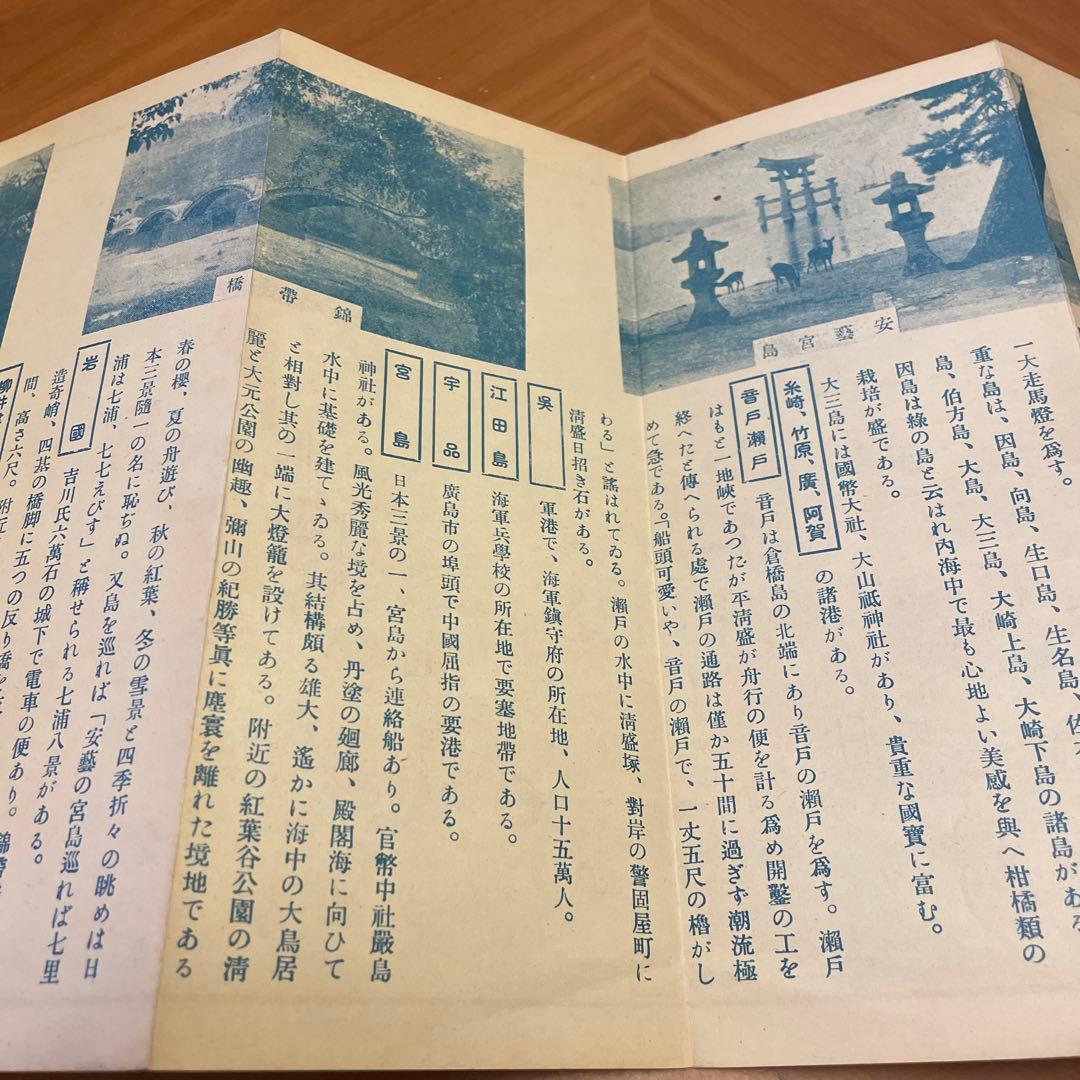 安藝宮島
錦帶橋
一大走馬燈を爲す。
重な島は、因島、向島、生口島、生名島、佐
島、伯方島、大島、大三島、大崎上島、大崎下島の諸島がある
因島は綠の島と云はれ內海中で最も心地よい美感を與へ柑橘類の
栽培が盛である。
大三島には國幣大社、大山祇神社があり、貴重な國寶に富む。
糸崎、竹原、廣、阿賀 の諸港がある。
音戸瀨戸 音戸は倉橋島の北端にあり音戸の瀨戸を爲す。瀨戸
はもと一地峽であつたが平淸盛が舟行の便を計る爲め開鑿の工を
終へたと傳へられる處で瀨戸の通路は僅か五十間に過ぎず潮流極
めて急である。「船頭可愛いや、音戸の瀨戸で、一丈五尺の櫓がし
わる」と謠はれてゐる。瀨戸の水中に淸盛塚、對岸の警固屋町に
淸盛日招き石がある。
吳 軍港で、海軍鎭守府の所在地、人口十五萬人。
江田島 海軍兵學校の所在地で要塞地帶である。
宇品 廣島市の埠頭で中國屈指の要港である。
宮島 日本三景の一、宮島から連絡船あり。官幣中社嚴島
神社がある。風光秀麗な境を占め、丹塗の廻廊、殿閣海に向ひて
水中に基礎を建てゝゐる。其結構頗る雄大、遙かに海中の大鳥居
と相對し其の一端に大燈籠を設けてある。附近の紅葉谷公園の淸
麗と大元公園の幽趣、彌山の紀勝等眞に塵寰を離れた境地である
春の櫻、夏の舟遊び、秋の紅葉、冬の雪景と四季折々の眺めは日
本三景隨一の名に恥ぢぬ。又島を巡れば「安藝の宮島巡れば七里
浦は七浦、七七えびす」と稱せられる七浦八景がある。
岩國 吉川氏六萬石の城下で電車の便あり。錦帶
造奇峭、四基の橋脚に五つの反り橋を
間、高さ六尺。附近
柳井